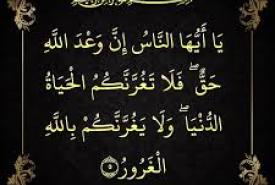 يَا أَيُّهَا النَّاسُ إِنَّ وَعْدَ اللَّهِ
حَقٌّ ۖ فَلَا تَغُرَّنَّكُمُ الْحَيَاةُ
الدُّنْيَا ۖ وَلَا يَغُرَّنَّكُمْ بِاللَّهِ
الْغَرُورُ ۝٥